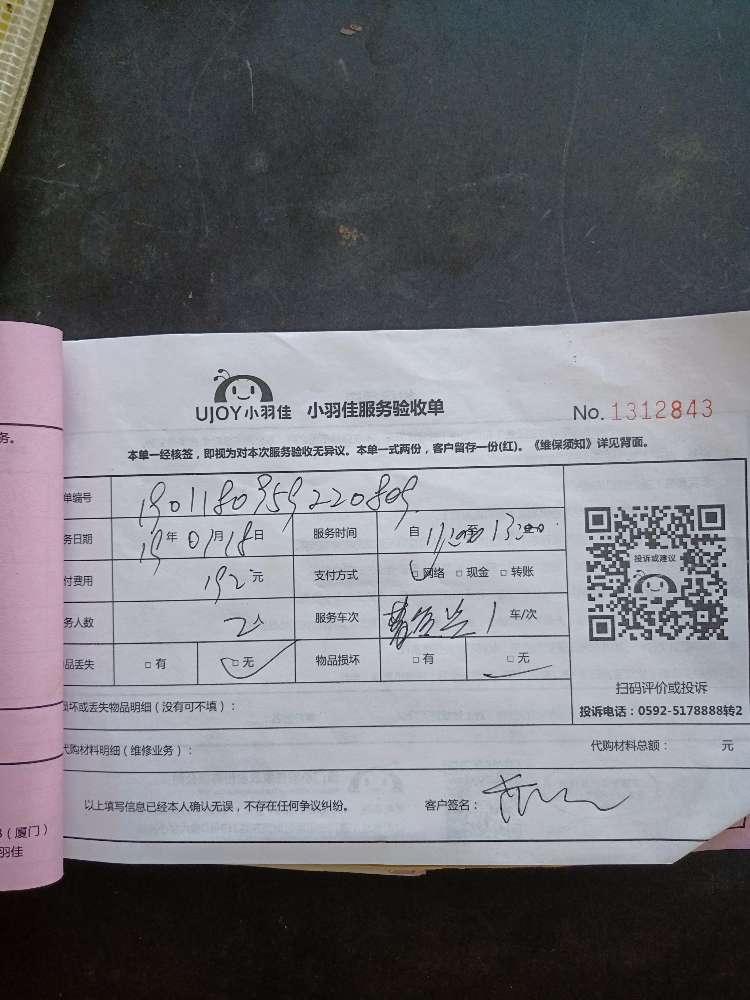 UJOY小羽佳 小羽佳服务验收单 No. 1312843
务。
本单一经核签，即视为对本次服务验收无异议。本单一式两份，客户留存一份(红)。《维保须知》详见背面。
单编号 190118095922080
务日期 19年01月18日 服务时间 自 至
付费用 192元 支付方式 □网络 □现金 □转账
务人数 2人 服务车次 1 车/次
品丢失 □有 □无 物品损坏 □有 □无
投诉或建议
扫码评价或投诉
投诉电话：0592-5178888转2
损坏或丢失物品明细（没有可不填）：
代购材料明细（维修业务）： 代购材料总额： 元
以上填写信息已经本人确认无误，不存在任何争议纠纷。 客户签名：
（厦门）
羽佳